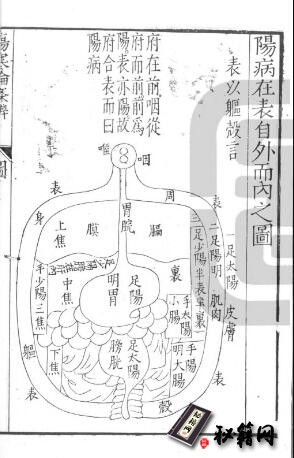 陽病在表自外而內之圖
表以軀殼言
府在前咽從
府而前前爲
陽表亦陽故
府合表而曰
陽病
咽
胃脘
周
表
身
表
軀
表
殼
表
一足太陽 皮膚
二足陽明 肌肉
三足少陽半表半裏
裏
膈
膜
上焦
中焦
下焦
手少陽三焦
足陽
明胃
足太陽
膀胱
手太陽
小腸
手陽
明大腸
傷寒論條辨
圖
秘籍网